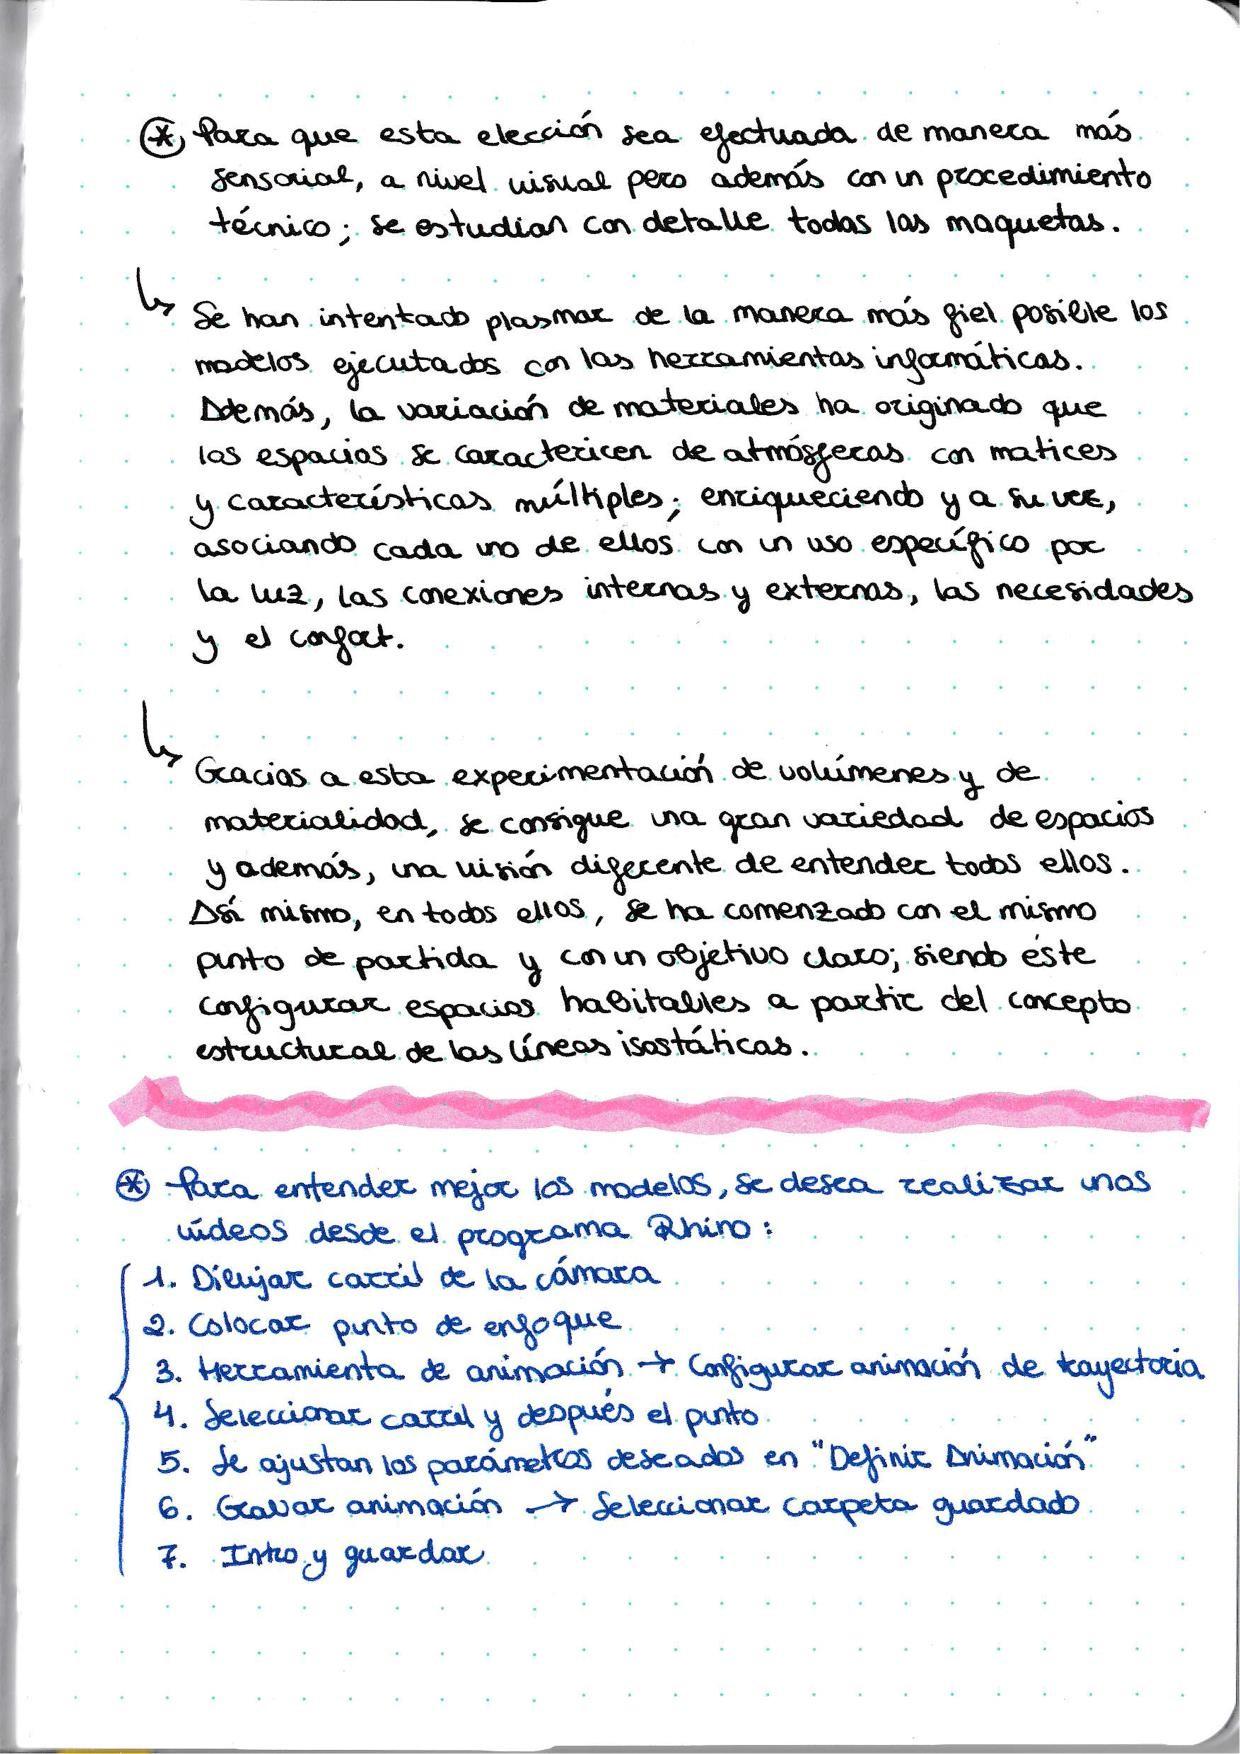 ⊛ Para que esta elección sea efectuada de manera más
sensorial, a nivel visual pero además con un procedimiento
técnico; se estudian con detalle todas las maquetas.
↳ Se han intentado plasmar de la manera más fiel posible los
modelos ejecutados con las herramientas informáticas.
Además, la variación de materiales ha originado que
los espacios se caractericen de atmósferas con matices
y características múltiples; enriqueciendo y a su vez,
asociando cada uno de ellos con un uso específico por
la luz, las conexiones internas y externas, las necesidades
y el confort.
↳ Gracias a esta experimentación de volúmenes y de
materialidad, se consigue una gran variedad de espacios
y además, una visión diferente de entender todos ellos.
Así mismo, en todos ellos, se ha comenzado con el mismo
punto de partida y con un objetivo claro; siendo éste
configurar espacios habitables a partir del concepto
estructural de las líneas isostáticas.
⊛ Para entender mejor los modelos, se desea realizar unos
vídeos desde el programa Rhino:
1. Dibujar carril de la cámara
2. Colocar punto de enfoque
3. Herramienta de animación → Configurar animación de trayectoria
4. Seleccionar carril y después el punto
5. Se ajustan los parámetros deseados en "Definir Animación"
6. Grabar animación → Seleccionar carpeta guardado
7. Intro y guardar